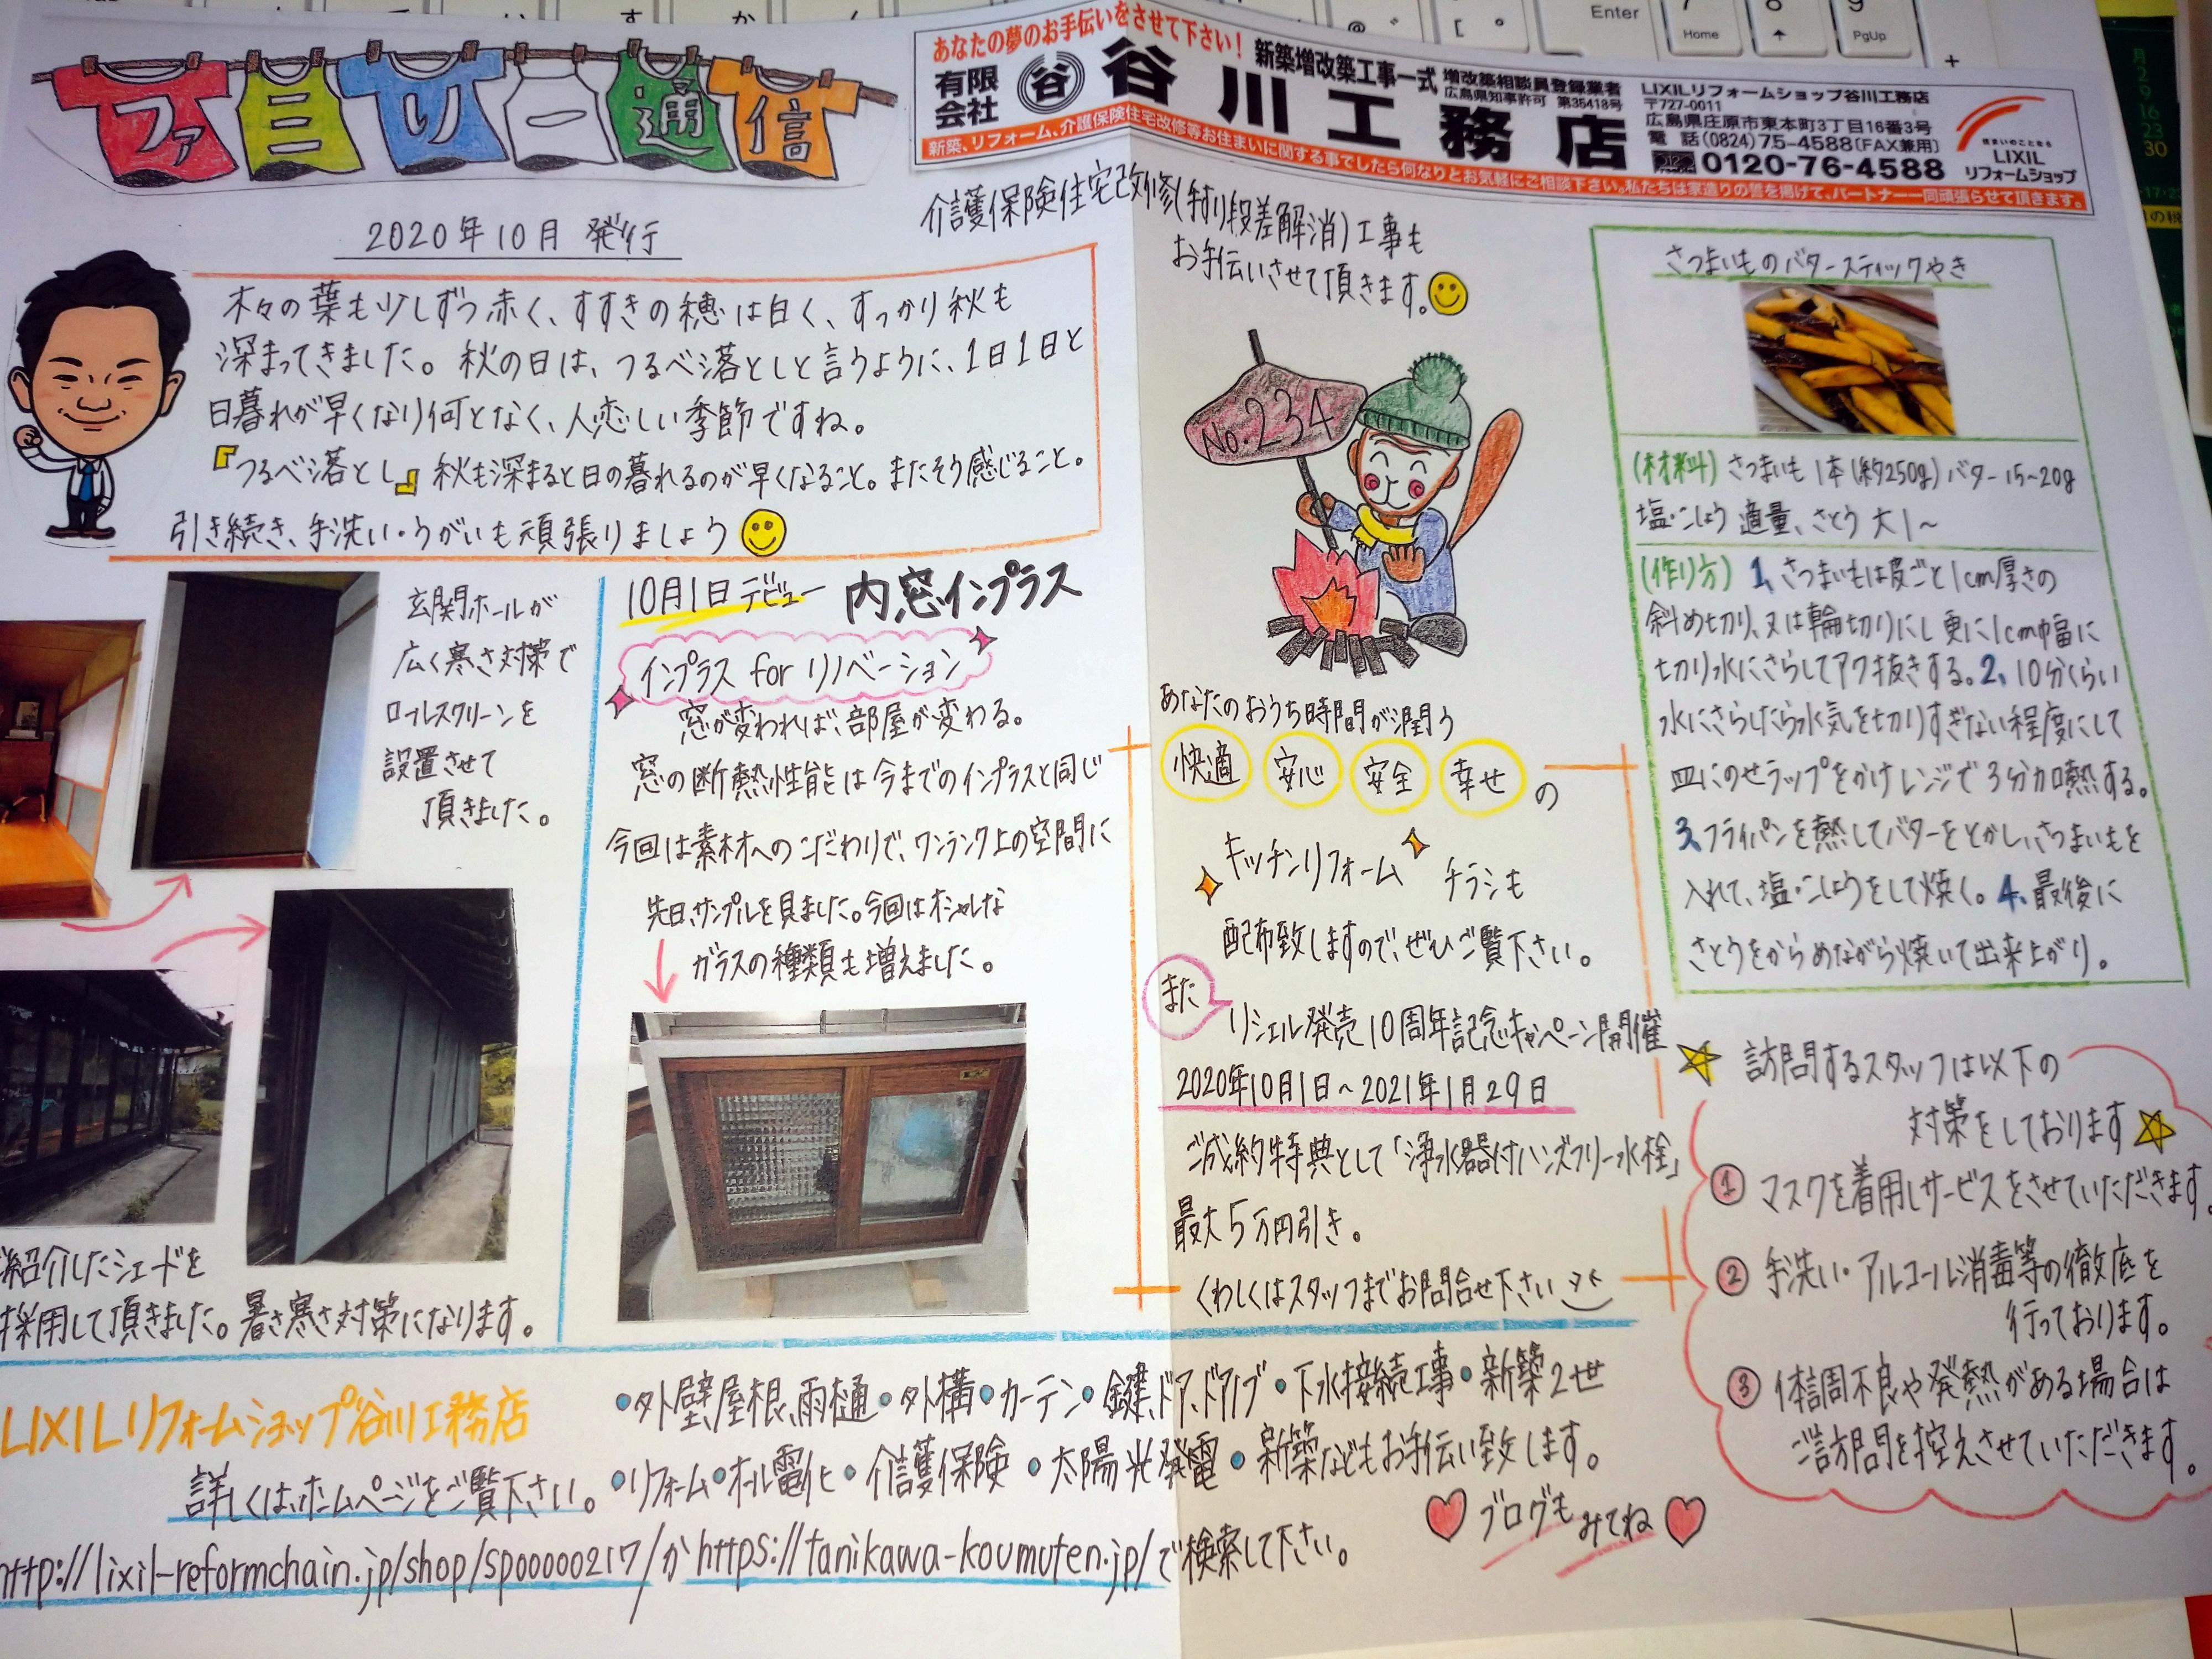 ファミリー通信
あなたの夢のお手伝いをさせて下さい!
有限会社 谷 谷川工務店
新築増改築工事一式 増改築相談員登録業者
広島県知事許可 第35418号
LIXILリフォームショップ谷川工務店
〒727-0011
広島県庄原市東本町3丁目16番3号
電話(0824)75-4588(FAX兼用)
0120-76-4588
新築、リフォーム、介護保険住宅改修等お住まいに関する事でしたら何なりとお気軽にご相談下さい。私たちは家造りの誓を掲げて、パートナー一同頑張らせて頂きます。
住まいのことなら
LIXIL
リフォームショップ
2020年10月 発行
介護保険住宅改修(手すり段差解消)工事も
お手伝いさせて頂きます。
木々の葉も少しずつ赤く、すすきの穂は白く、すっかり秋も
深まってきました。秋の日は、つるべ落としと言うように、1日1日と
日暮れが早くなり何となく、人恋しい季節ですね。
『つるべ落とし』秋も深まると日の暮れるのが早くなること。またそう感じること。
引き続き、手洗い・うがいも頑張りましょう
玄関ホールが
広く寒さ対策で
ロールスクリーンを
設置させて
頂きました。
ご紹介したシェードを
採用して頂きました。暑さ寒さ対策になります。
10月1日デビュー 内窓インプラス
インプラス for リノベーション
窓が変われば、部屋が変わる。
窓の断熱性能は今までのインプラスと同じ
今回は素材へのこだわりで、ワンランク上の空間に
先日、サンプルを見ました。今回はオシャレな
ガラスの種類も増えました。
No.234
あなたのおうち時間が潤う
快適 安心 安全 幸せの
キッチンリフォーム チラシも
配布致しますので、ぜひご覧下さい。
また
リシェル発売10周年記念キャンペーン開催
2020年10月1日~2021年1月29日
ご成約特典として「浄水器付ハンズフリー水栓」
最大5万円引き。
くわしくはスタッフまでお問合せ下さい
さつまいものバタースティックやき
(材料) さつまいも 1本(約250g) バター 15~20g
塩・こしょう 適量、さとう 大1~
(作り方) 1、さつまいもは皮ごと1cm厚さの
斜め切り、又は輪切りにし更に1cm幅に
切り水にさらしてアク抜きする。2、10分くらい
水にさらしたら水気を切りすぎない程度にして
皿にのせラップをかけレンジで3分加熱する。
3、フライパンを熱してバターをとかし、さつまいもを
入れて、塩・こしょうをして焼く。4、最後に
さとうをからめながら焼いて出来上がり。
訪問するスタッフは以下の
対策をしております
① マスクを着用しサービスをさせていただきます。
② 手洗い・アルコール消毒等の徹底を
行っております。
③ 体調不良や発熱がある場合は
ご訪問を控えさせていただきます。
LIXILリフォームショップ谷川工務店
詳しくは、ホームページをご覧下さい。
・外壁、屋根、雨樋・外構・カーテン・鍵、ドア、ドアノブ・下水接続工事・新築2世
・リフォーム・オール電化・介護保険・太陽光発電・新築などもお手伝い致します。
http://lixil-reformchain.jp/shop/sp00000217/か https://tanikawa-koumuten.jp/で検索して下さい。
ブログもみてね
Enter
Home
PgUp